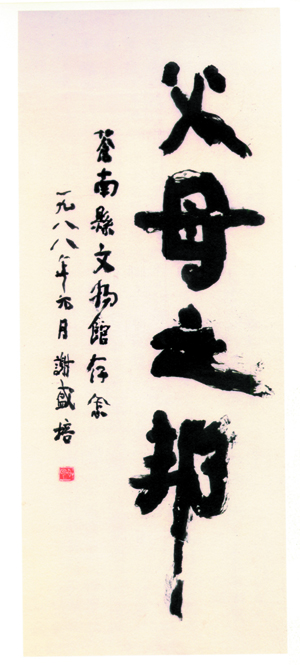 父母之邦
蒼南縣文物館存念
一九八八年元月謝盛培